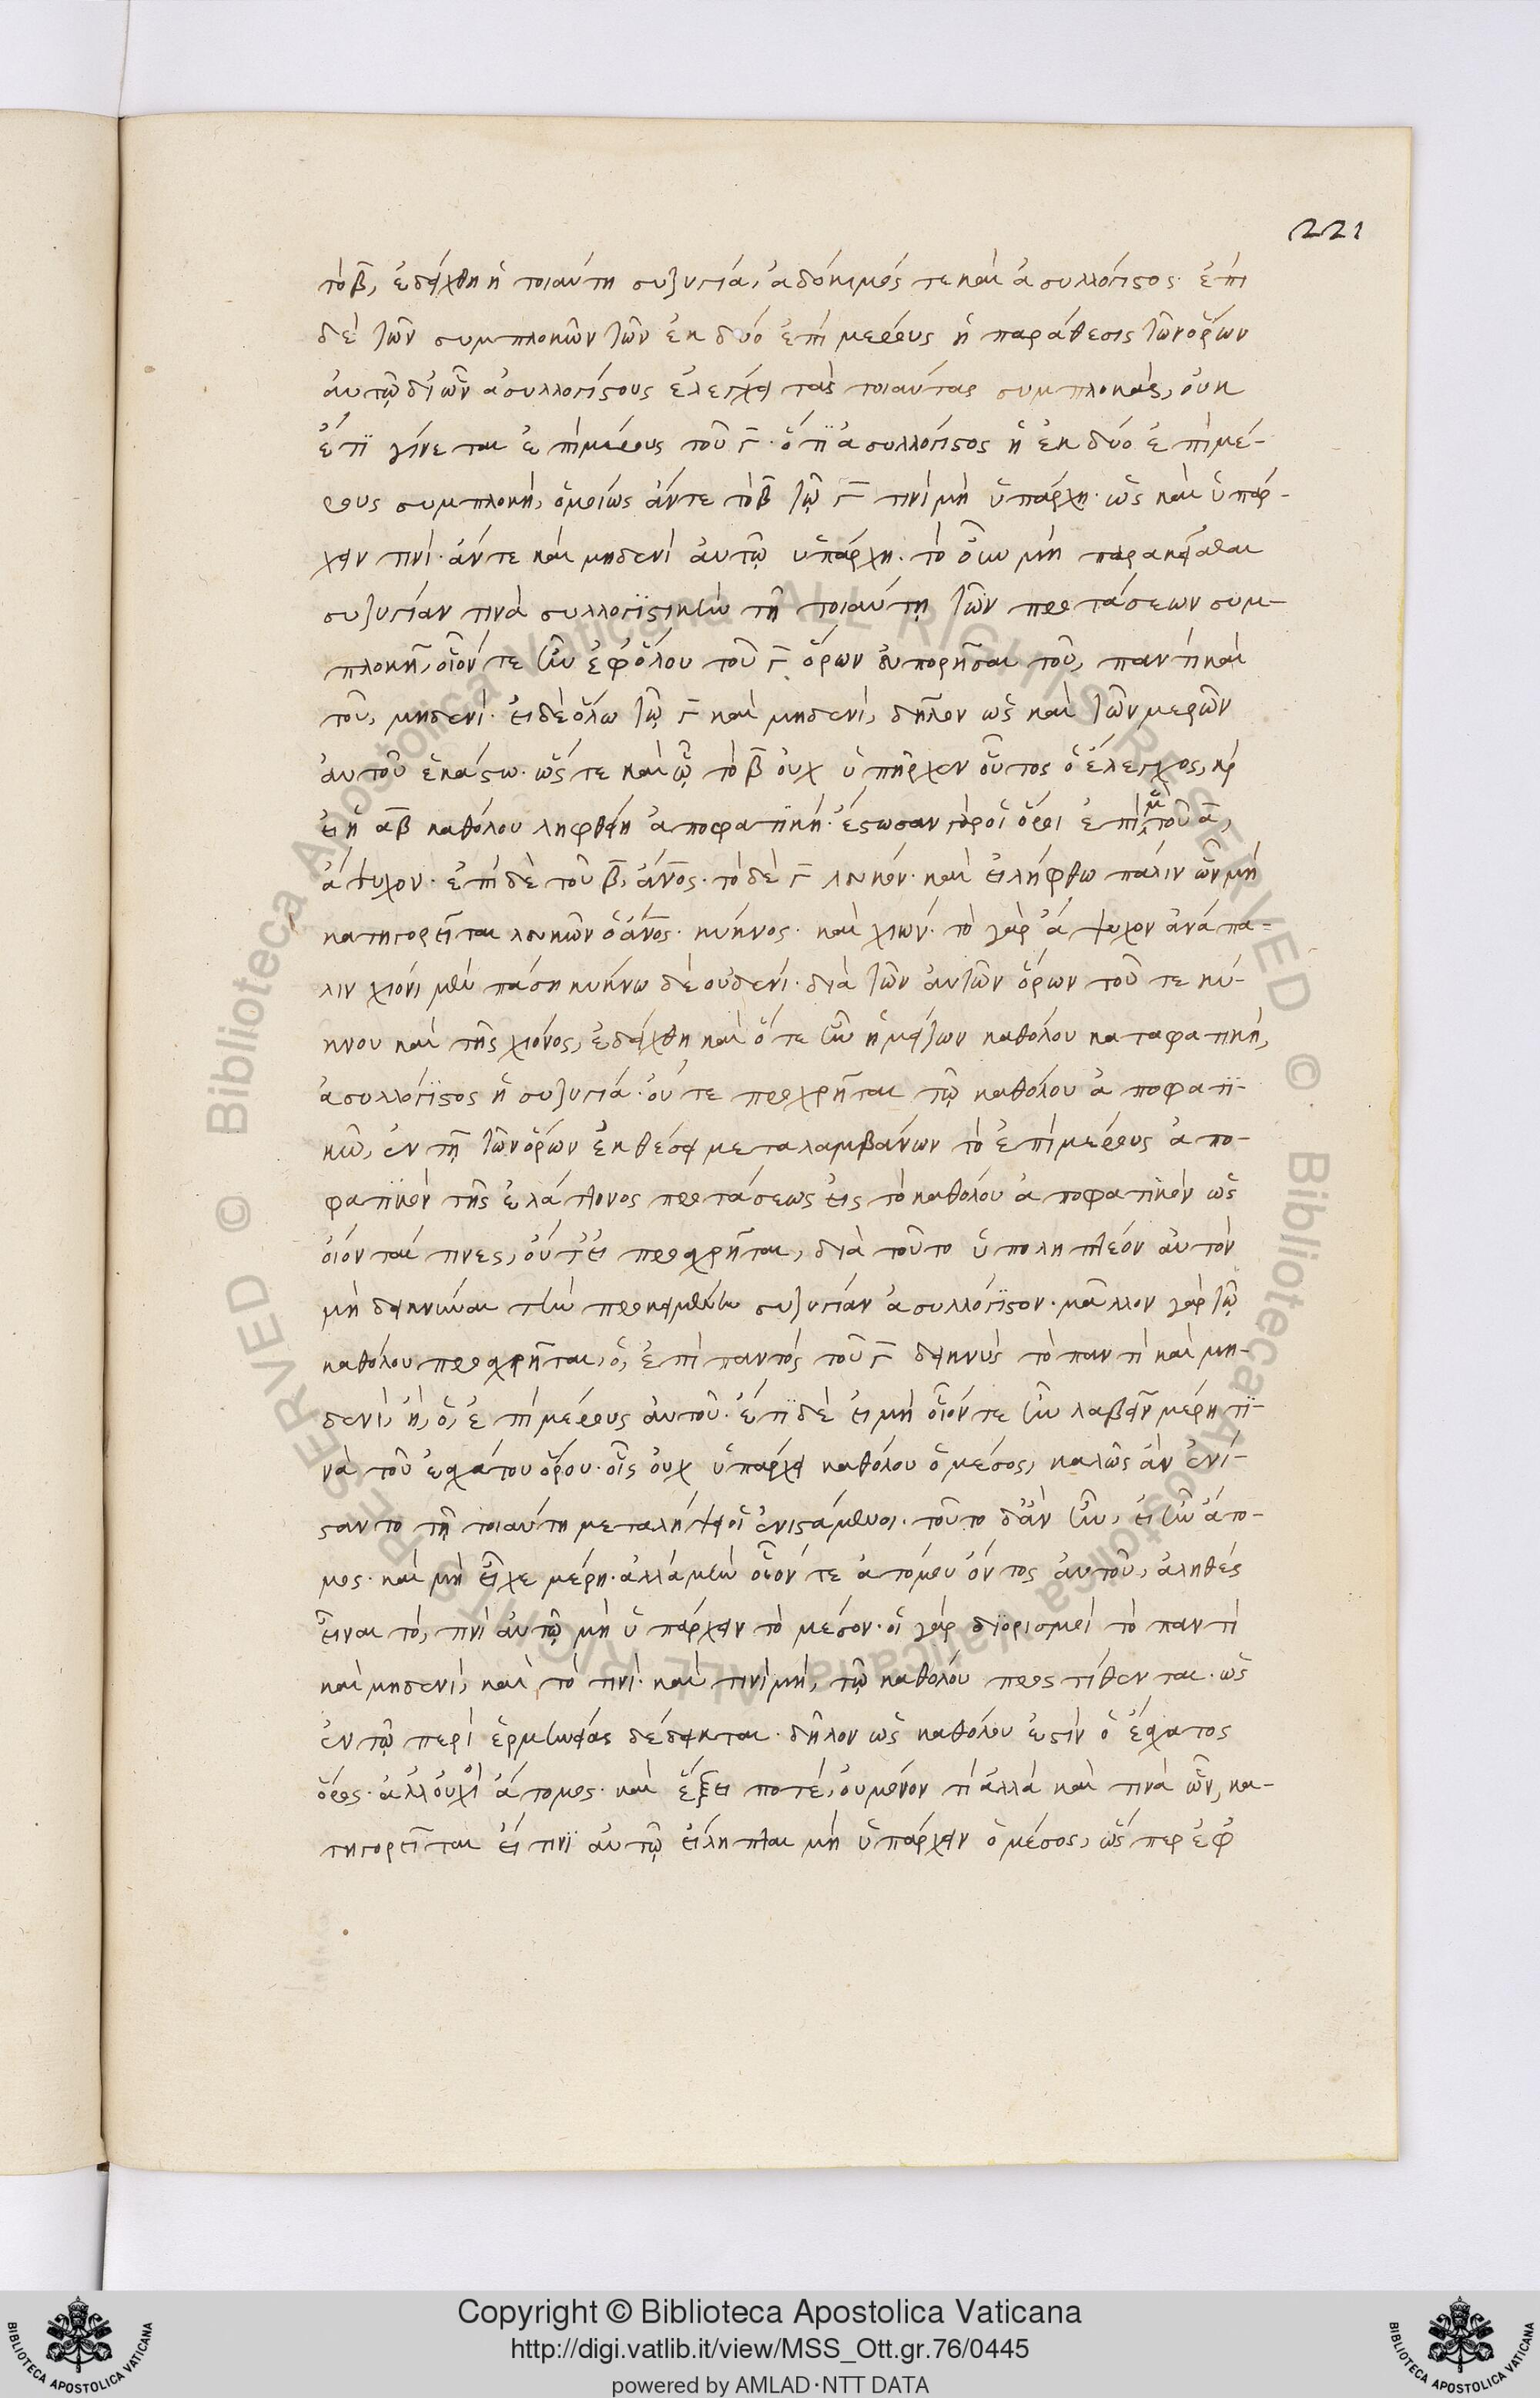 221
τὸ β̄, ἐδείχθη ἡ τοιαύτη συζυγία, ἀδόκιμός τε καὶ ἀσυλλόγιστος· ἐπὶ
δὲ τῶν συμπλοκῶν τῶν ἐκ δύο ἐπὶ μέρους ἡ παράθεσις τῶν ὅρων
αὐτῷ δι' ὧν ἀσυλλογίστους ἐλέγχει τὰς τοιαύτας συμπλοκὰς, οὐκ
ἔτι γίνεται ἐπὶ μέρους τοῦ γ̄· ὅτι ἀσυλλόγιστος ἡ ἐκ δύο ἐπὶ μέ-
ρους συμπλοκή, ὁμοίως ἄν τε τὸ β̄ τῷ γ̄ τινὶ μὴ ὑπάρχη· ὡς καὶ ὑπάρ-
χειν τινὶ· ἄν τε καὶ μηδενὶ αὐτῷ ὑπάρχη· τὸ οὕτω μὴ παρακεῖσθαι
συζυγίαν τινὰ συλλογιστικὴν τῇ τοιαύτῃ τῶν προτάσεων συμ-
πλοκῇ, οἷόν τε ἦν ἐφ' ὅλου τοῦ γ̄ ὅρων εὐπορῆσαι τοῦ, παντὶ καὶ
τοῦ, μηδενί· εἰ δὲ ὅλω τῷ γ̄ καὶ μηδενὶ, δῆλον ὡς καὶ τῶν μερῶν
αὐτοῦ ἑκάστω· ὥστε καὶ ᾧ τὸ β̄ οὐχ ὑπῆρχεν οὗτος ὁ ἔλεγχος, κἂν
εἰ ἡ ᾱβ̄ καθόλου ληφθείη ἀποφατικὴ· ἔστωσαν γὰρ οἱ ὅροι ἐπὶ μὲν τοῦ ᾱ,
ἄψυχον· ἐπὶ δὲ τοῦ β̄, ἄν̅ος· τὸ δὲ γ̄ λευκόν· καὶ εἰλήφθω πάλιν ὧν μὴ
κατηγορεῖται λευκῶν ὁ ἄν̅ος· κύκνος· καὶ χιών· τὸ γὰρ ἄψυχον ἀνάπα-
λιν χιόνι μὲν πάσῃ κύκνω δὲ οὐδενί· διὰ τῶν αὐτῶν ὅρων τοῦ τε κύ-
κνου καὶ τῆς χιόνος, ἐδείχθη καὶ ὅτε ἦν ἡ μείζων καθόλου καταφατική,
ἀσυλλόγιστος ἡ συζυγία· οὔτε προχρῆται τῷ καθόλου ἀποφατι-
κῶ, ἐν τῇ τῶν ὅρων ἐκθέσει μεταλαμβάνων τὸ ἐπὶ μέρους ἀπο-
φατικὸν τῆς ἐλάττονος προτάσεως εἰς τὸ καθόλου ἀποφατικὸν ὡς
οἴονταί τινες, οὔτ' εἰ προσχρῆται, διὰ τοῦτο ὑποληπτέον αὐτὸν
μὴ δεικνύναι τὴν προκειμένην συζυγίαν ἀσυλλόγιστον· μᾶλλον γὰρ τῷ
καθόλου προσχρῆται, ὃ, ἐπὶ παντὸς τοῦ γ̄ δείκνυσι τὸ παντὶ καὶ μη-
δενὶ, ἢ, ὃ, ἐπὶ μέρους αὐτοῦ· ἔτι δὲ εἰ μὴ οἷόν τε ἦν λαβεῖν μέρη τι-
νὰ τοῦ ἐσχάτου ὅρου· οἷς οὐχ ὑπάρχει καθόλου ὁ μέσος, καλῶς ἂν ἐνί-
σταντο τῇ τοιαύτη μεταλήψει οἱ ἐνιστάμενοι· τοῦτο δ' ἂν ἦν, εἰ ἦν ἄτο-
μος· καὶ μὴ εἶχε μέρη· ἀλλὰ μὴν οἷόν τε ἀτόμου ὄντος αὐτοῦ, ἀληθὲς
εἶναι τὸ, τινὶ αὐτῷ μὴ ὑπάρχειν τὸ μέσον· οἱ γὰρ διορισμοὶ τὸ παντὶ
καὶ μηδενὶ, καὶ τὸ τινὶ· καὶ τινὶ μή, τῷ καθόλου προστίθενται· ὡς
ἐν τῷ περὶ ἑρμηνείας δέδεικται· δῆλον ὡς καθόλου ἐστὶν ὁ ἔσχατος
ὅρος· ἀλλ' οὐχὶ ἄτομος· καὶ ἕξει ποτέ, οὐ μόνον τὶ ἀλλὰ καὶ τινὰ ὧν, κα-
τηγορεῖται εἴ τινι αὐτῷ εἴληπται μὴ ὑπάρχειν ὁ μέσος, ὥσπερ ἐφ'
Copyright © Biblioteca Apostolica Vaticana
http://digi.vatlib.it/view/MSS_Ott.gr.76/0445
powered by AMLAD·NTT DATA